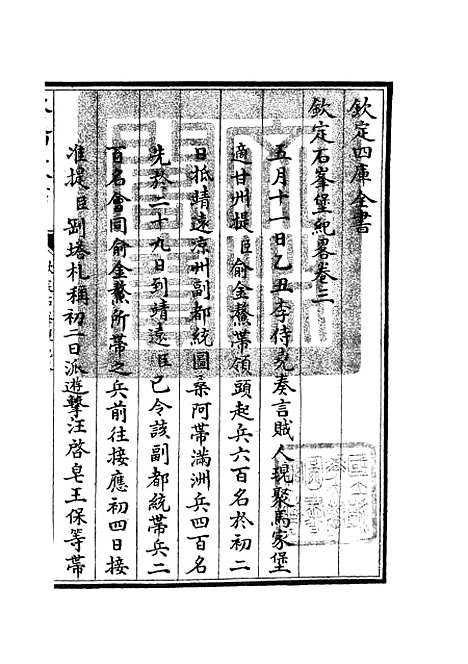 欽定四庫全書
欽定石峯堡紀畧卷三
五月十一日乙丑李侍堯奏言賊人現聚馬家堡
適甘州提臣俞金鰲帶領頭起兵六百名於初二
日抵靖遠涼州副都統圖桑阿帶滿洲兵四百名
先於二十九日到靖遠臣已令該副都統帶兵二
百名會同俞金鰲所帶之兵前往接應初四日接
准提臣剛塔札稱初一日派遊擊汪啓皂王保等帶